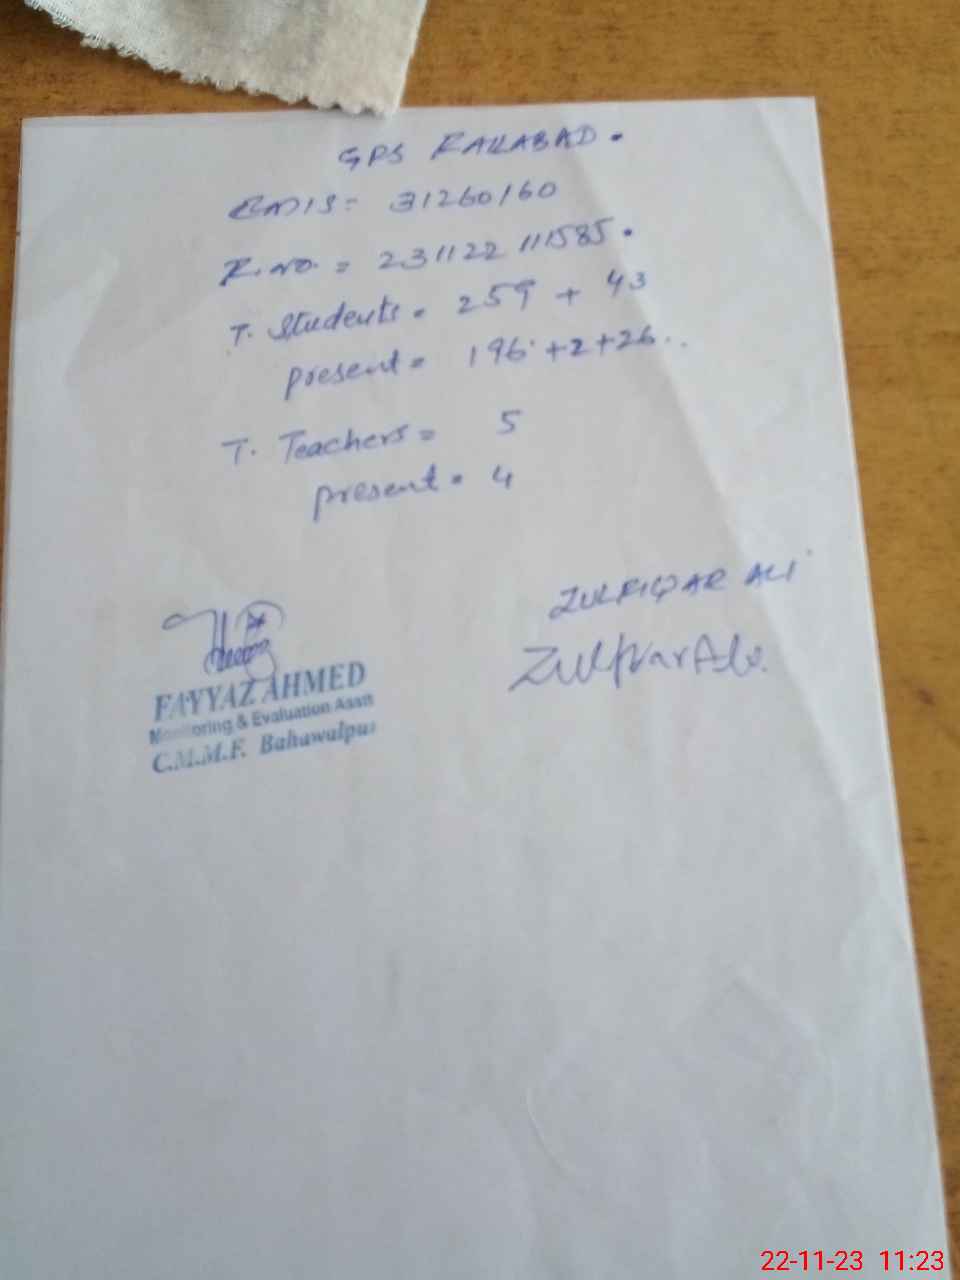 GPS
EMIS = 31260160
R.no. = 231122 111585.
T. Students = 259 + 43
present = 196 + 2 + 26..
T. Teachers = 5
present = 4
ZULFIQAR ALI
FAYYAZ AHMED
Monitoring & Evaluation Asstt
C.M.M.F. Bahawalpur
22-11-23 11:23